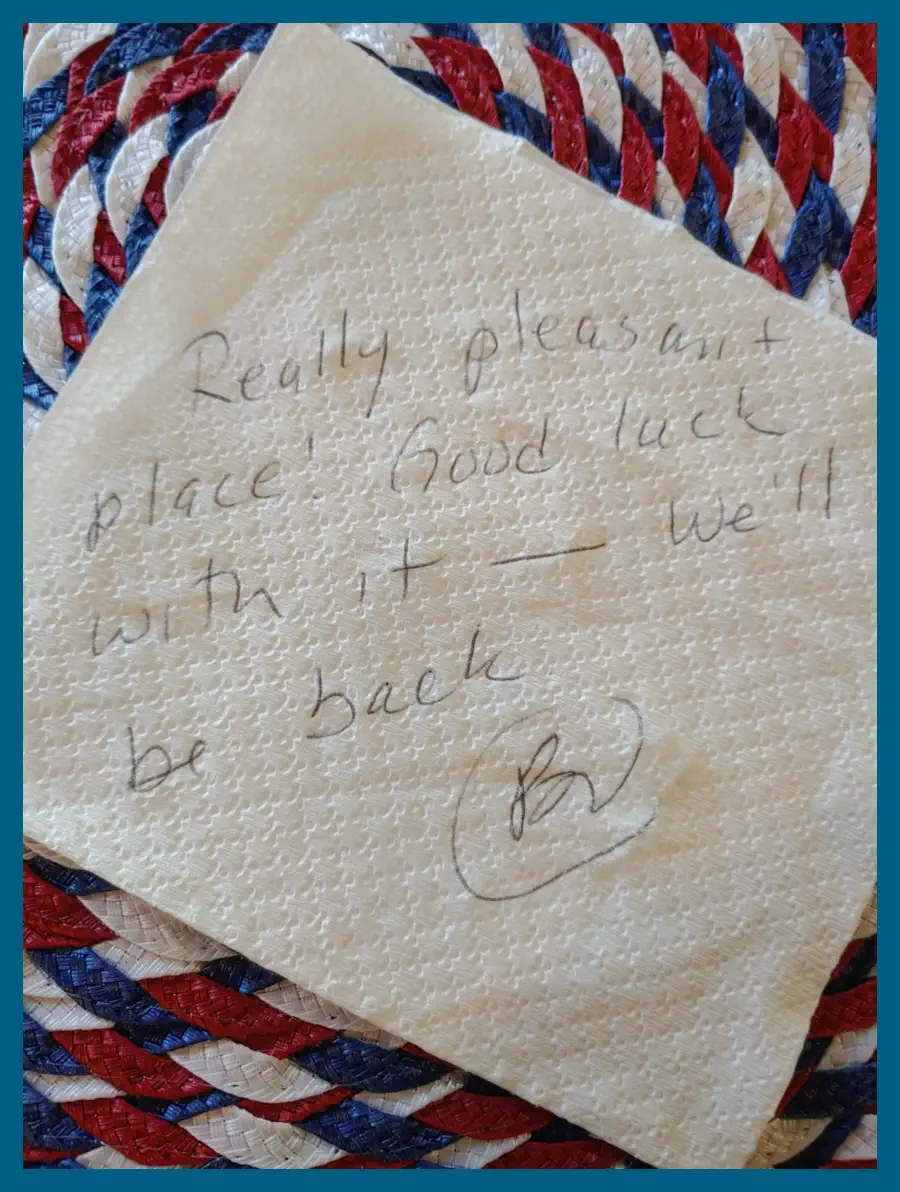 Really pleasant
place! Good luck
with it — We'll
be back